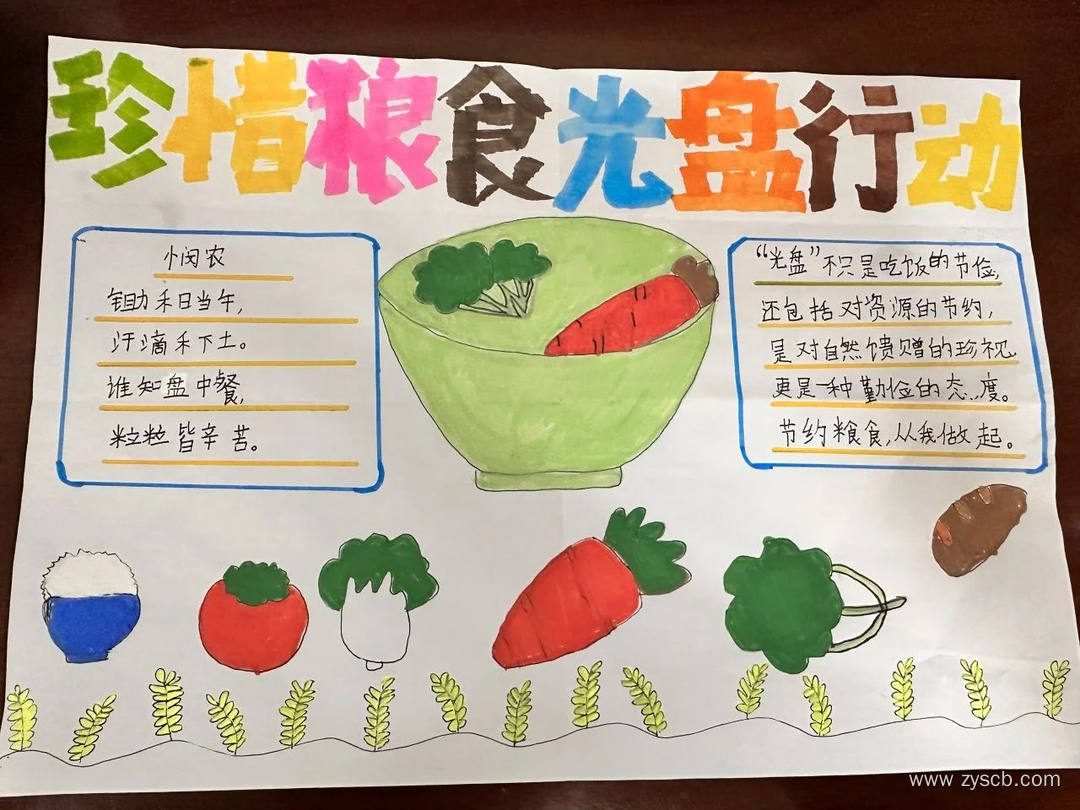 珍惜粮食光盘行动
悯农
锄禾日当午,
汗滴禾下土。
谁知盘中餐,
粒粒皆辛苦。
“光盘”不只是吃饭的节俭,
还包括对资源的节约,
是对自然馈赠的珍视
更是一种勤俭的态度。
节约粮食,从我做起。
www.zyscb.com